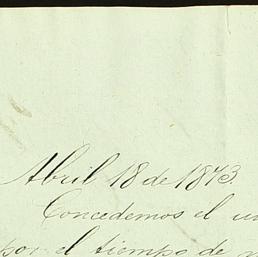 Abril 18 de 1873.
Concedemos el
por el tiempo de